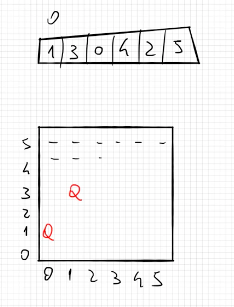 0
1 3 0 4 2 5
5 - - - - - -
4 - - -
3 Q
2
1 Q
0
0 1 2 3 4 5